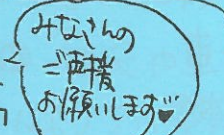 みなさんの
ご声援
お願いします♥